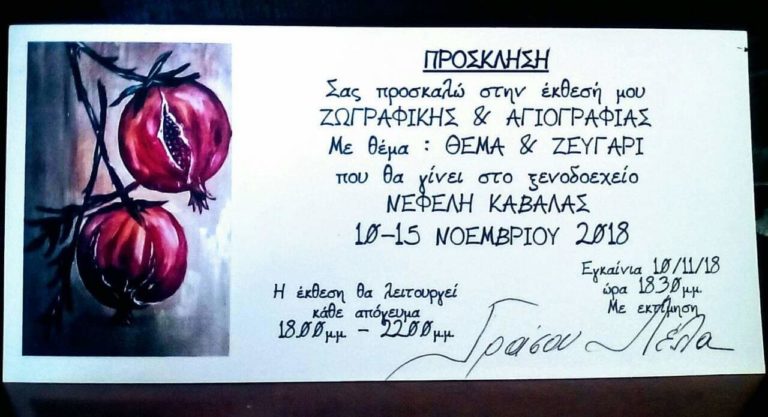 ΠΡΟΣΚΛΗΣΗ
Σας προσκαλώ στην έκθεσή μου
ΖΩΓΡΑΦΙΚΗΣ & ΑΓΙΟΓΡΑΦΙΑΣ
Με θέμα : ΘΕΜΑ & ΖΕΥΓΑΡΙ
που θα γίνει στο ξενοδοεχείο
ΝΕΦΕΛΗ ΚΑΒΑΛΑΣ
10-15 ΝΟΕΜΒΡΙΟΥ 2018
Η έκθεση θα λειτουργεί
κάθε απόγευμα
18.00μμ - 22.00μμ
Εγκαίνια 10/11/18
ώρα 18.30μμ
Με εκτίμηση
Γράσου Λέλα